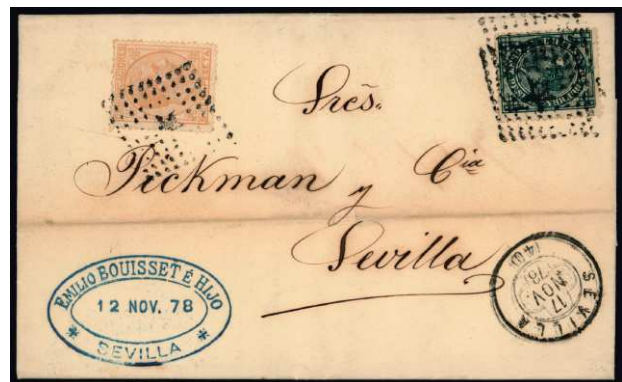 Sres.
Pickman y Cia
Sevilla
EMILIO BOUISSET É HIJO
12 NOV. 78
* SEVILLA *
SEVILLA
17
NOV.
78